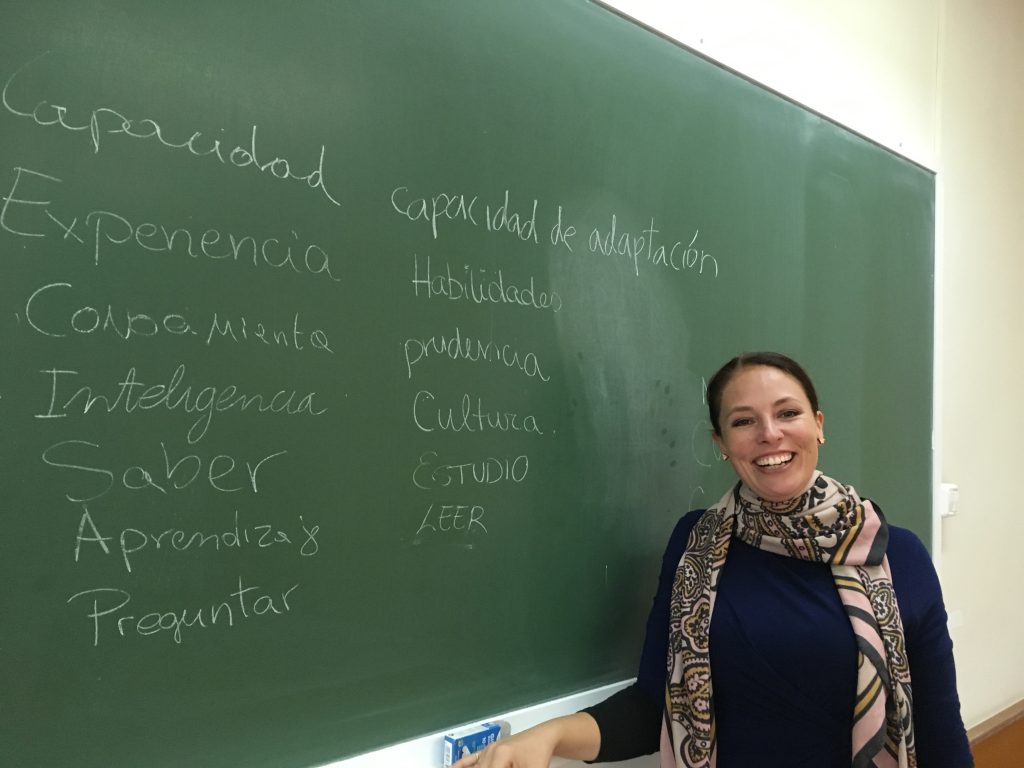 Capacidad
Experiencia
Inteligencia
Saber
Aprendizaj
Preguntar
capacidad de adaptación
Habilidades
prudencia
Cultura.
ESTUDIO
LEER